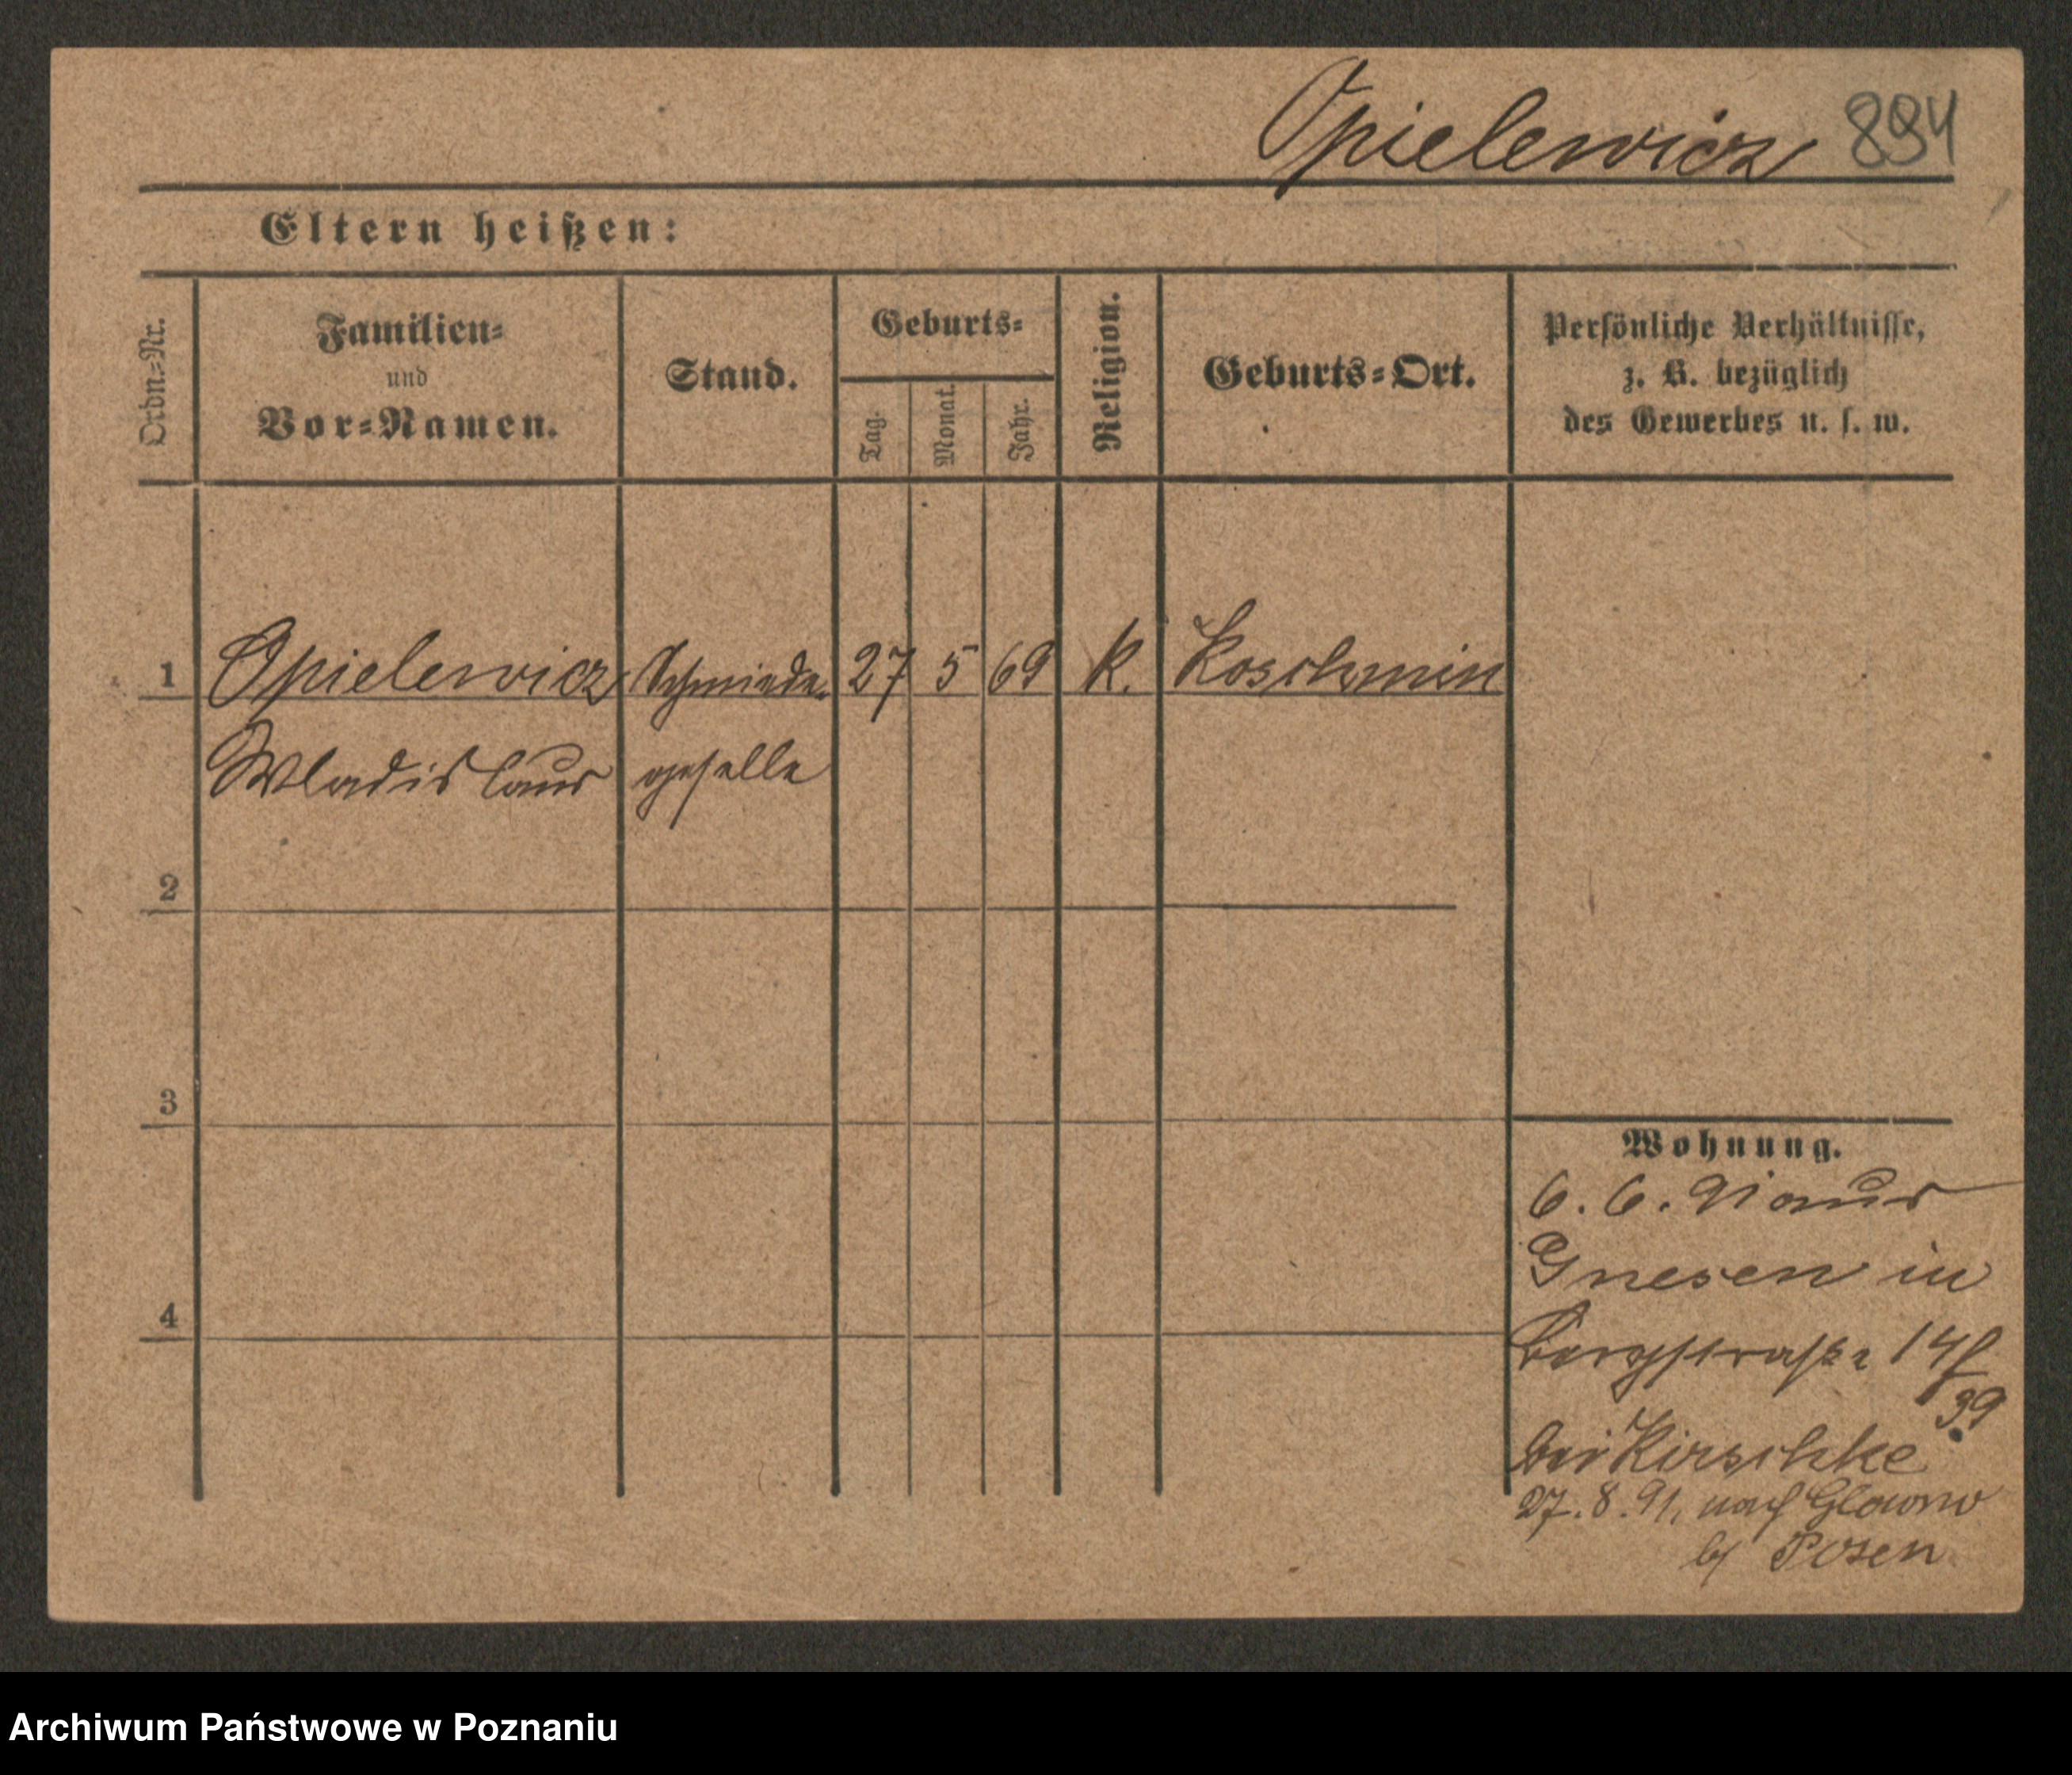 Opielewicz 894
Eltern heißen:
Ordn.-Nr.
Familien-
und
Vor-Namen.
Stand.
Geburts-
Tag.
Monat.
Jahr.
Religion.
Geburts-Ort.
Persönliche Verhältnisse,
z. B. bezüglich
des Gewerbes u. s. w.
1 Opielewicz Schmiede- 27 5 69 k. Koschmin
Wladislaus geselle
2
3
4
Wohnung.
6. 6. 91 aus
Gnesen in
Bergstraße 14/
39
bei Kirschke
27. 8. 91. nach Glowno
b/ Posen
Archiwum Państwowe w Poznaniu